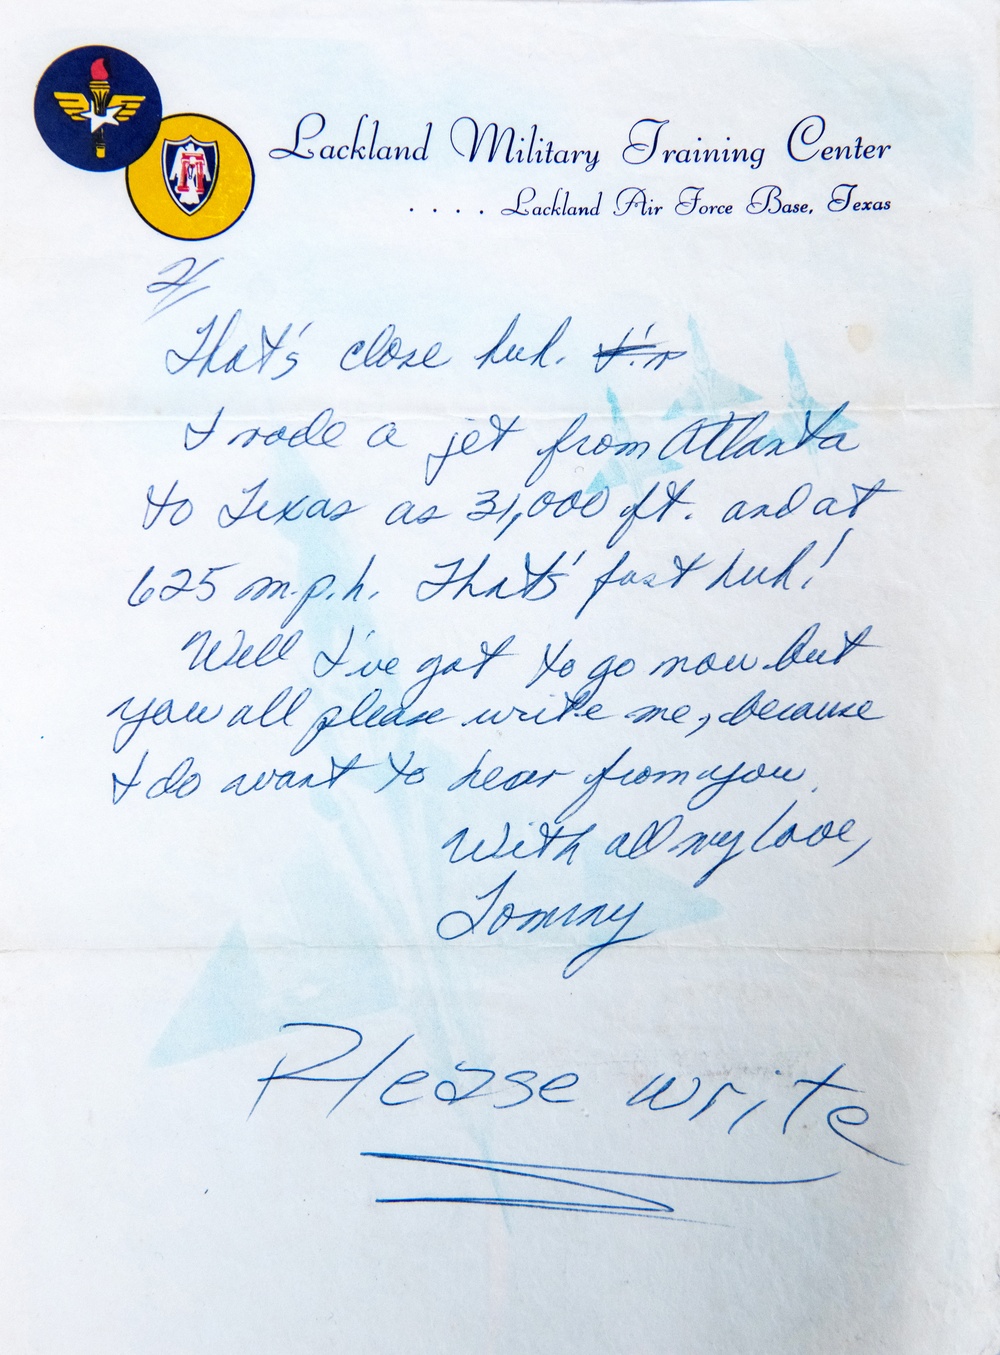 Lackland Military Training Center
. . . . Lackland Air Force Base, Texas
2/
That's close huh.
I rode a jet from Atlanta
to Texas as 31,000 ft. and at
625 m.p.h. That's fast huh!
Well I've got to go now but
you all please write me, because
I do want to hear from you.
With all my love,
Tommy
Please write